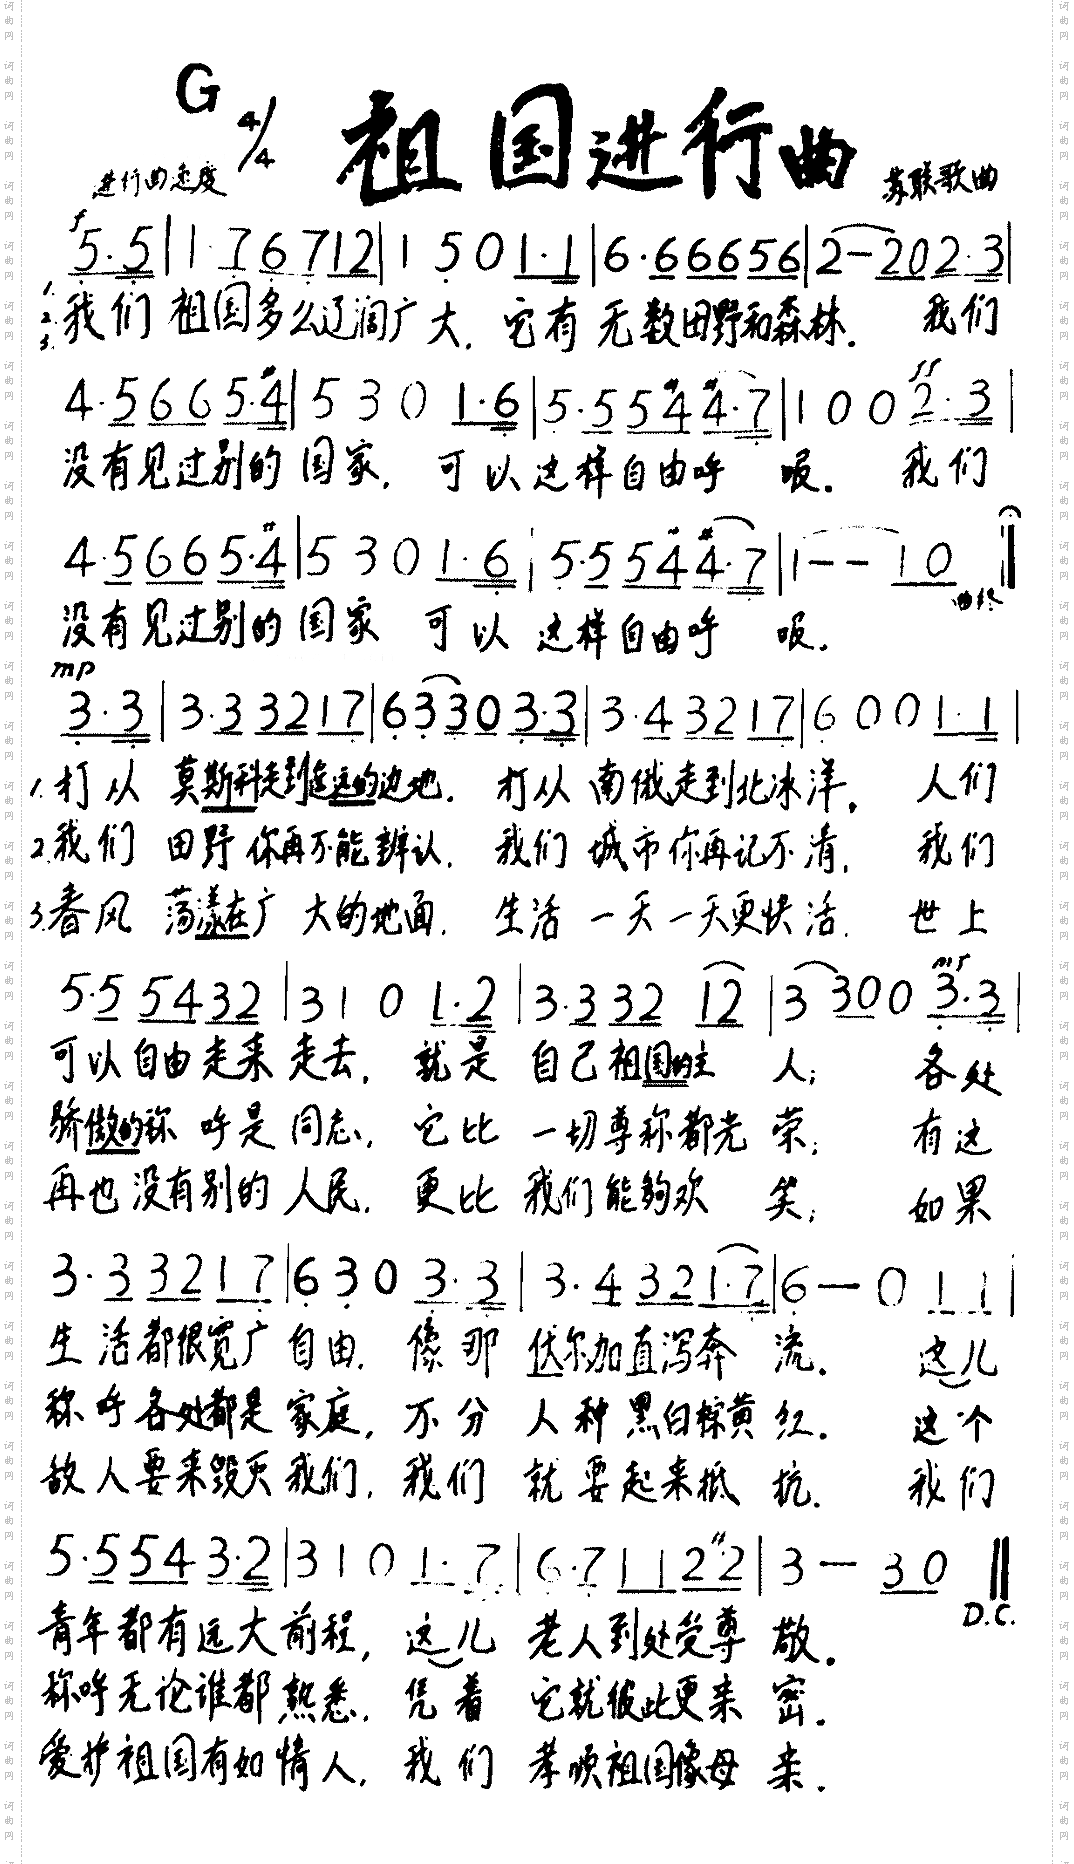 G 4/4 祖国进行曲
进行曲速度 苏联歌曲
f
5·5 | 1·7 6 712 | 1 5 0 1·1 | 6·6 66656 | 2-20 2·3 |
1. 2. 3. 我们 祖国多么辽阔广大. 它有 无数田野和森林. 我们
ff
4·5 66 5·#4 | 5 3 0 1·6 | 5·5 5#4 #4·7 | 1 0 0 2·3 |
没有见过别的 国家. 可以这样自由呼 吸. 我们
4·5 66 5·#4 | 5 3 0 1·6 | 5·5 5#4 #4·7 | 1 - - 1 0
曲终
没有见过别的 国家 可以 这样自由呼 吸.
mp
3·3 | 3·3 32 17 | 6 3 30 3·3 | 3·4 32 17 | 6 0 0 1·1 |
1. 打从 莫斯科走到遥远的边地. 打从 南俄走到北冰洋. 人们
2. 我们 田野你再不能辨认. 我们 城市你再记不清. 我们
3. 春风 荡漾在广大的地面. 生活 一天一天更快活. 世上
mf
5·5 54 32 | 3 1 0 1·2 | 3·3 32 12 | 3 30 0 3·3 |
可以自由走来走去, 就是 自己祖国的主 人; 各处
骄傲的称呼是同志, 它比 一切尊称都光 荣; 有这
再也没有别的人民. 更比 我们能夠欢 笑; 如果
3·3 32 17 | 6 3 0 3·3 | 3·4 32 1·7 | 6 - 0 1 1 |
生活都很宽广自由. 像那 伏尔加直泻奔 流. 这儿
称呼各处都是家庭, 不分 人种黑白棕黄 红. 这个
敌人要来毁灭我们, 我们 就要起来抵 抗. 我们
5·5 54 3·2 | 3 1 0 1·7 | 6·7 11 2#2 | 3 - 30
D.C.
青年都有远大前程, 这儿 老人到处受尊 敬.
称呼无论谁都熟悉. 凭着 它就彼此更来 密.
爱护祖国有如情人. 我们 孝顺祖国像母 亲.